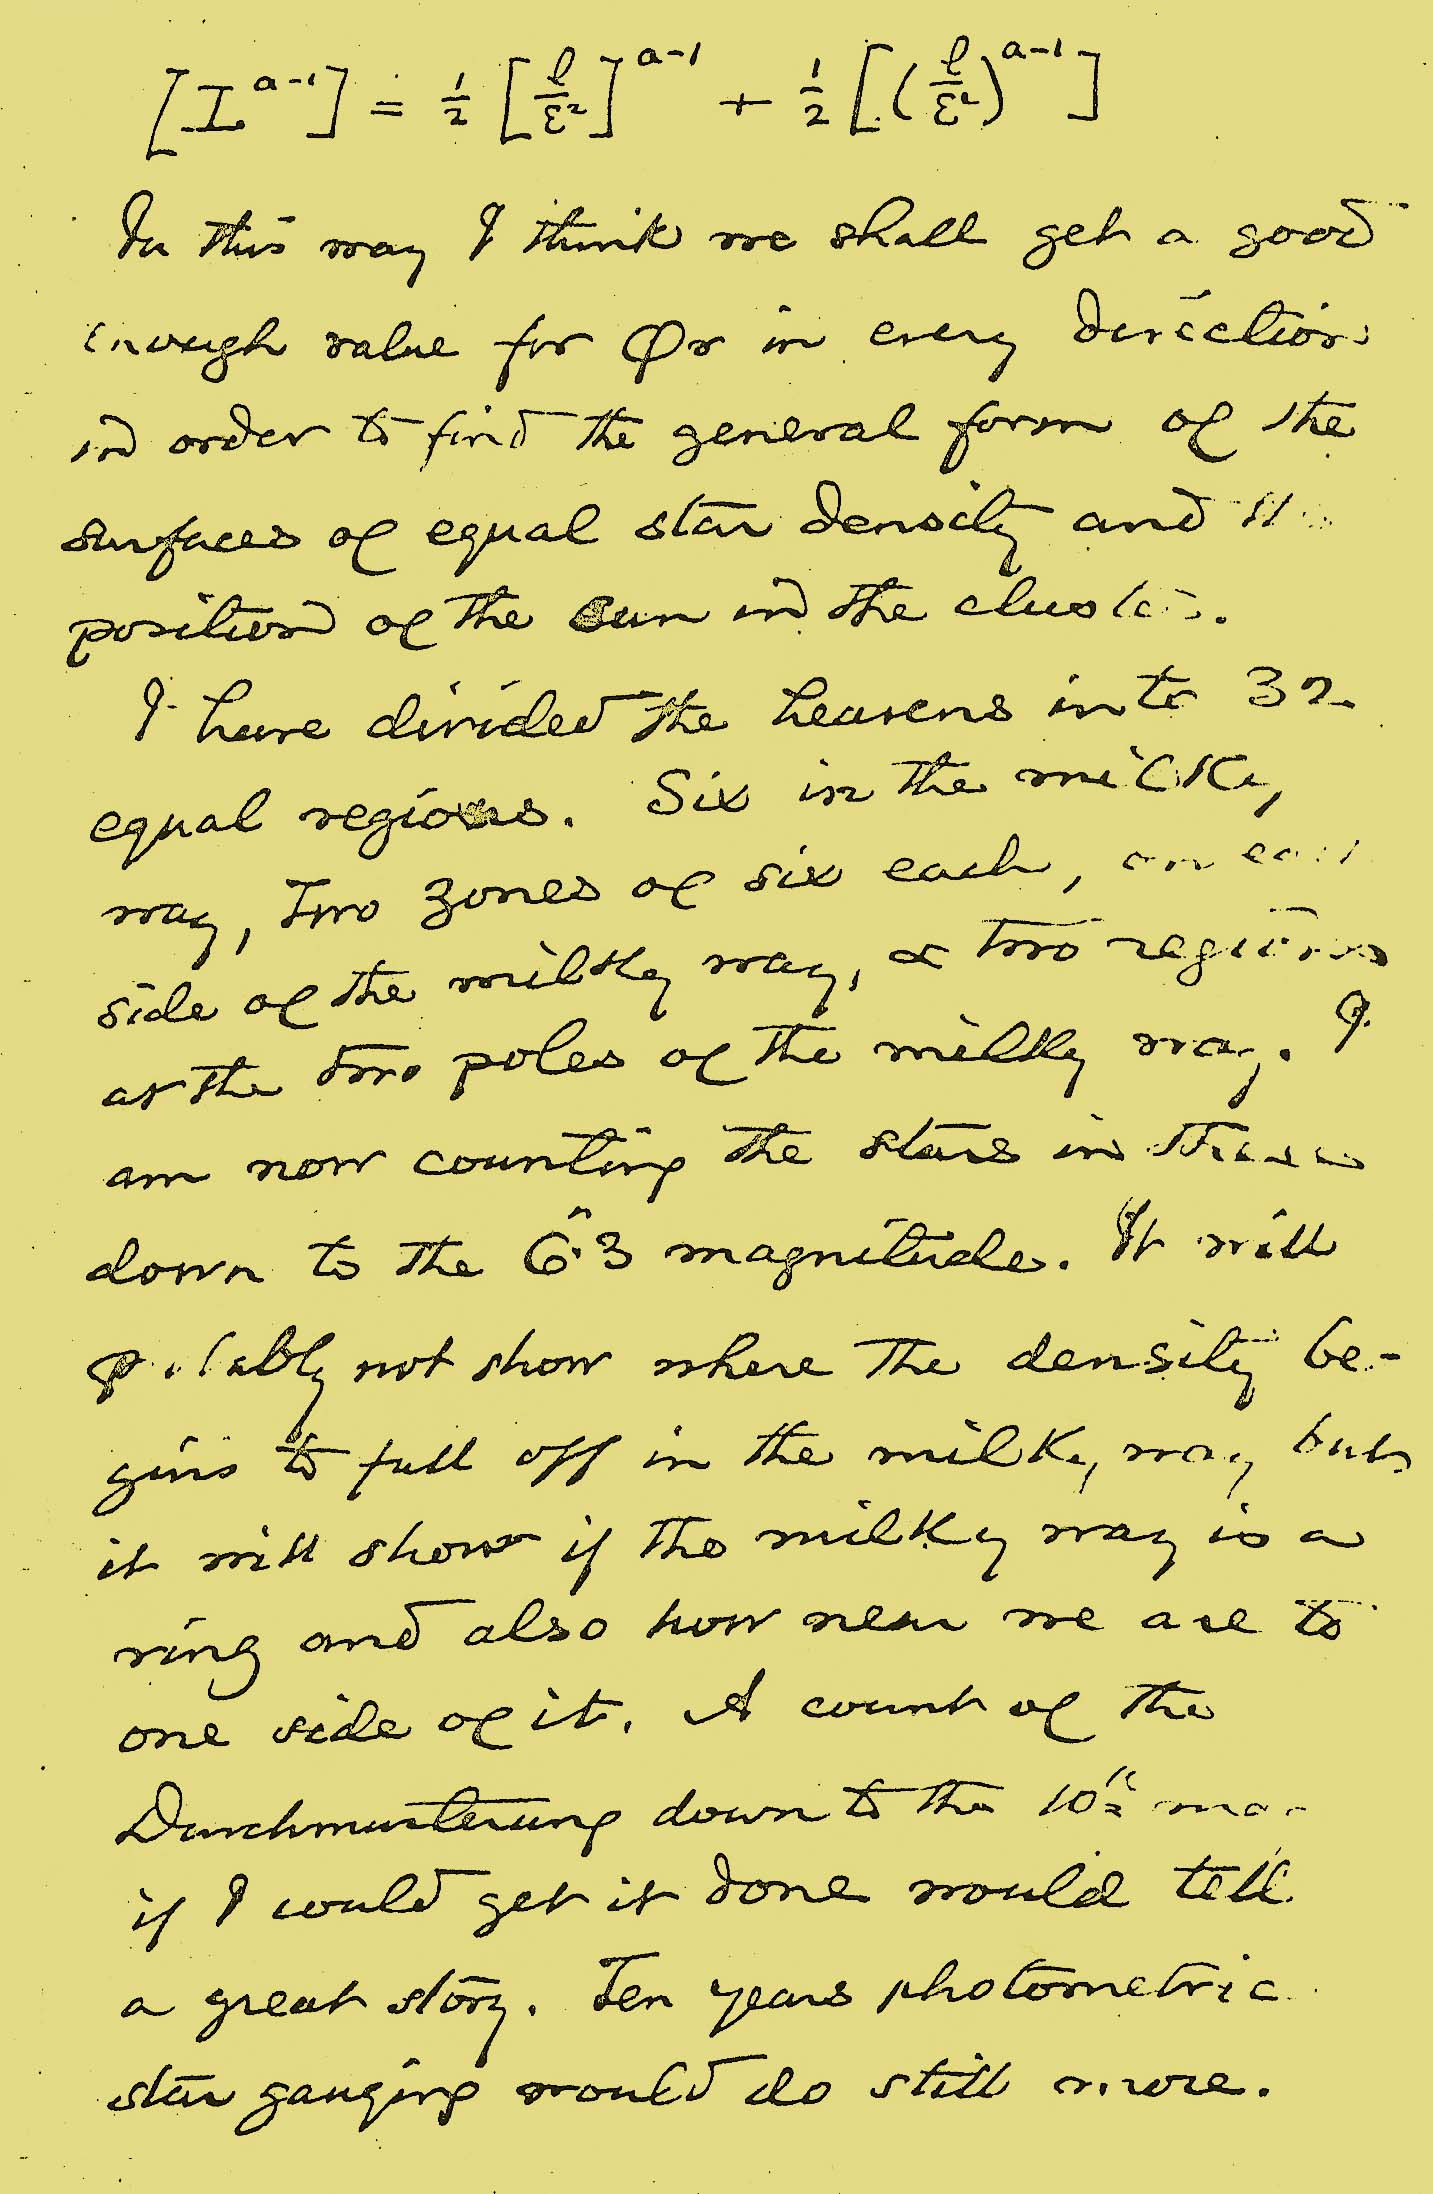 [I^{a-1}] = 1/2 [l/ε²]^{a-1} + 1/2 [(l/ε²)^{a-1}]
In this way I think we shall get a good
enough value for φr in every direction
in order to find the general form of the
surfaces of equal star density and the
position of the sun in the cluster.
I have divided the heavens into 32
equal regions. Six in the milky
way, two zones of six each, on each
side of the milky way, & two regions
at the two poles of the milky way. I
am now counting the stars in these
down to the 6ᵐ.3 magnitude. It will
probably not show where the density be-
gins to fall off in the milky way but
it will show if the milky way is a
ring and also how near we are to
one side of it. A count of the
Durchmusterung down to the 10th mag
if I could get it done would tell
a great story. Ten years photometric
star gauging would do still more.